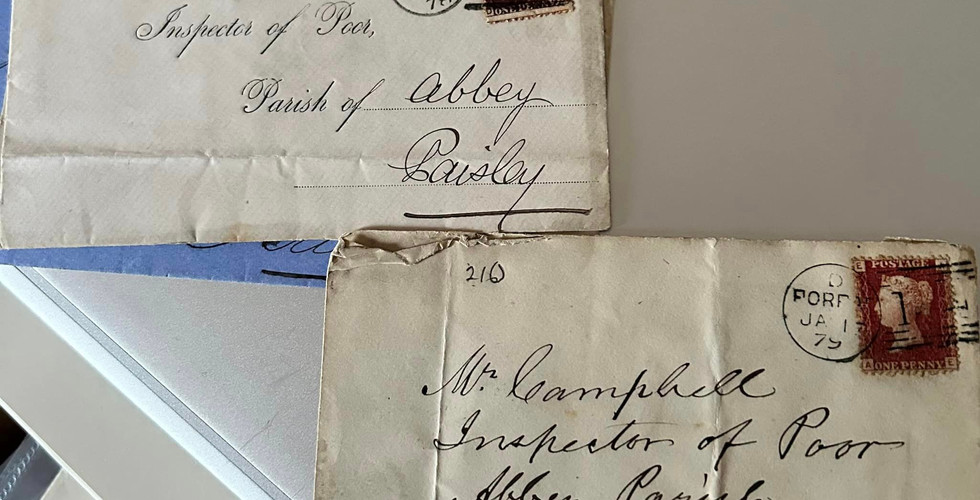 Inspector of Poor,
Parish of Abbey
Paisley
216
Mr. Campbell
Inspector of Poor
Abbey Parish
D
JA 1
79
E POSTAGE
1
A ONE PENNY E